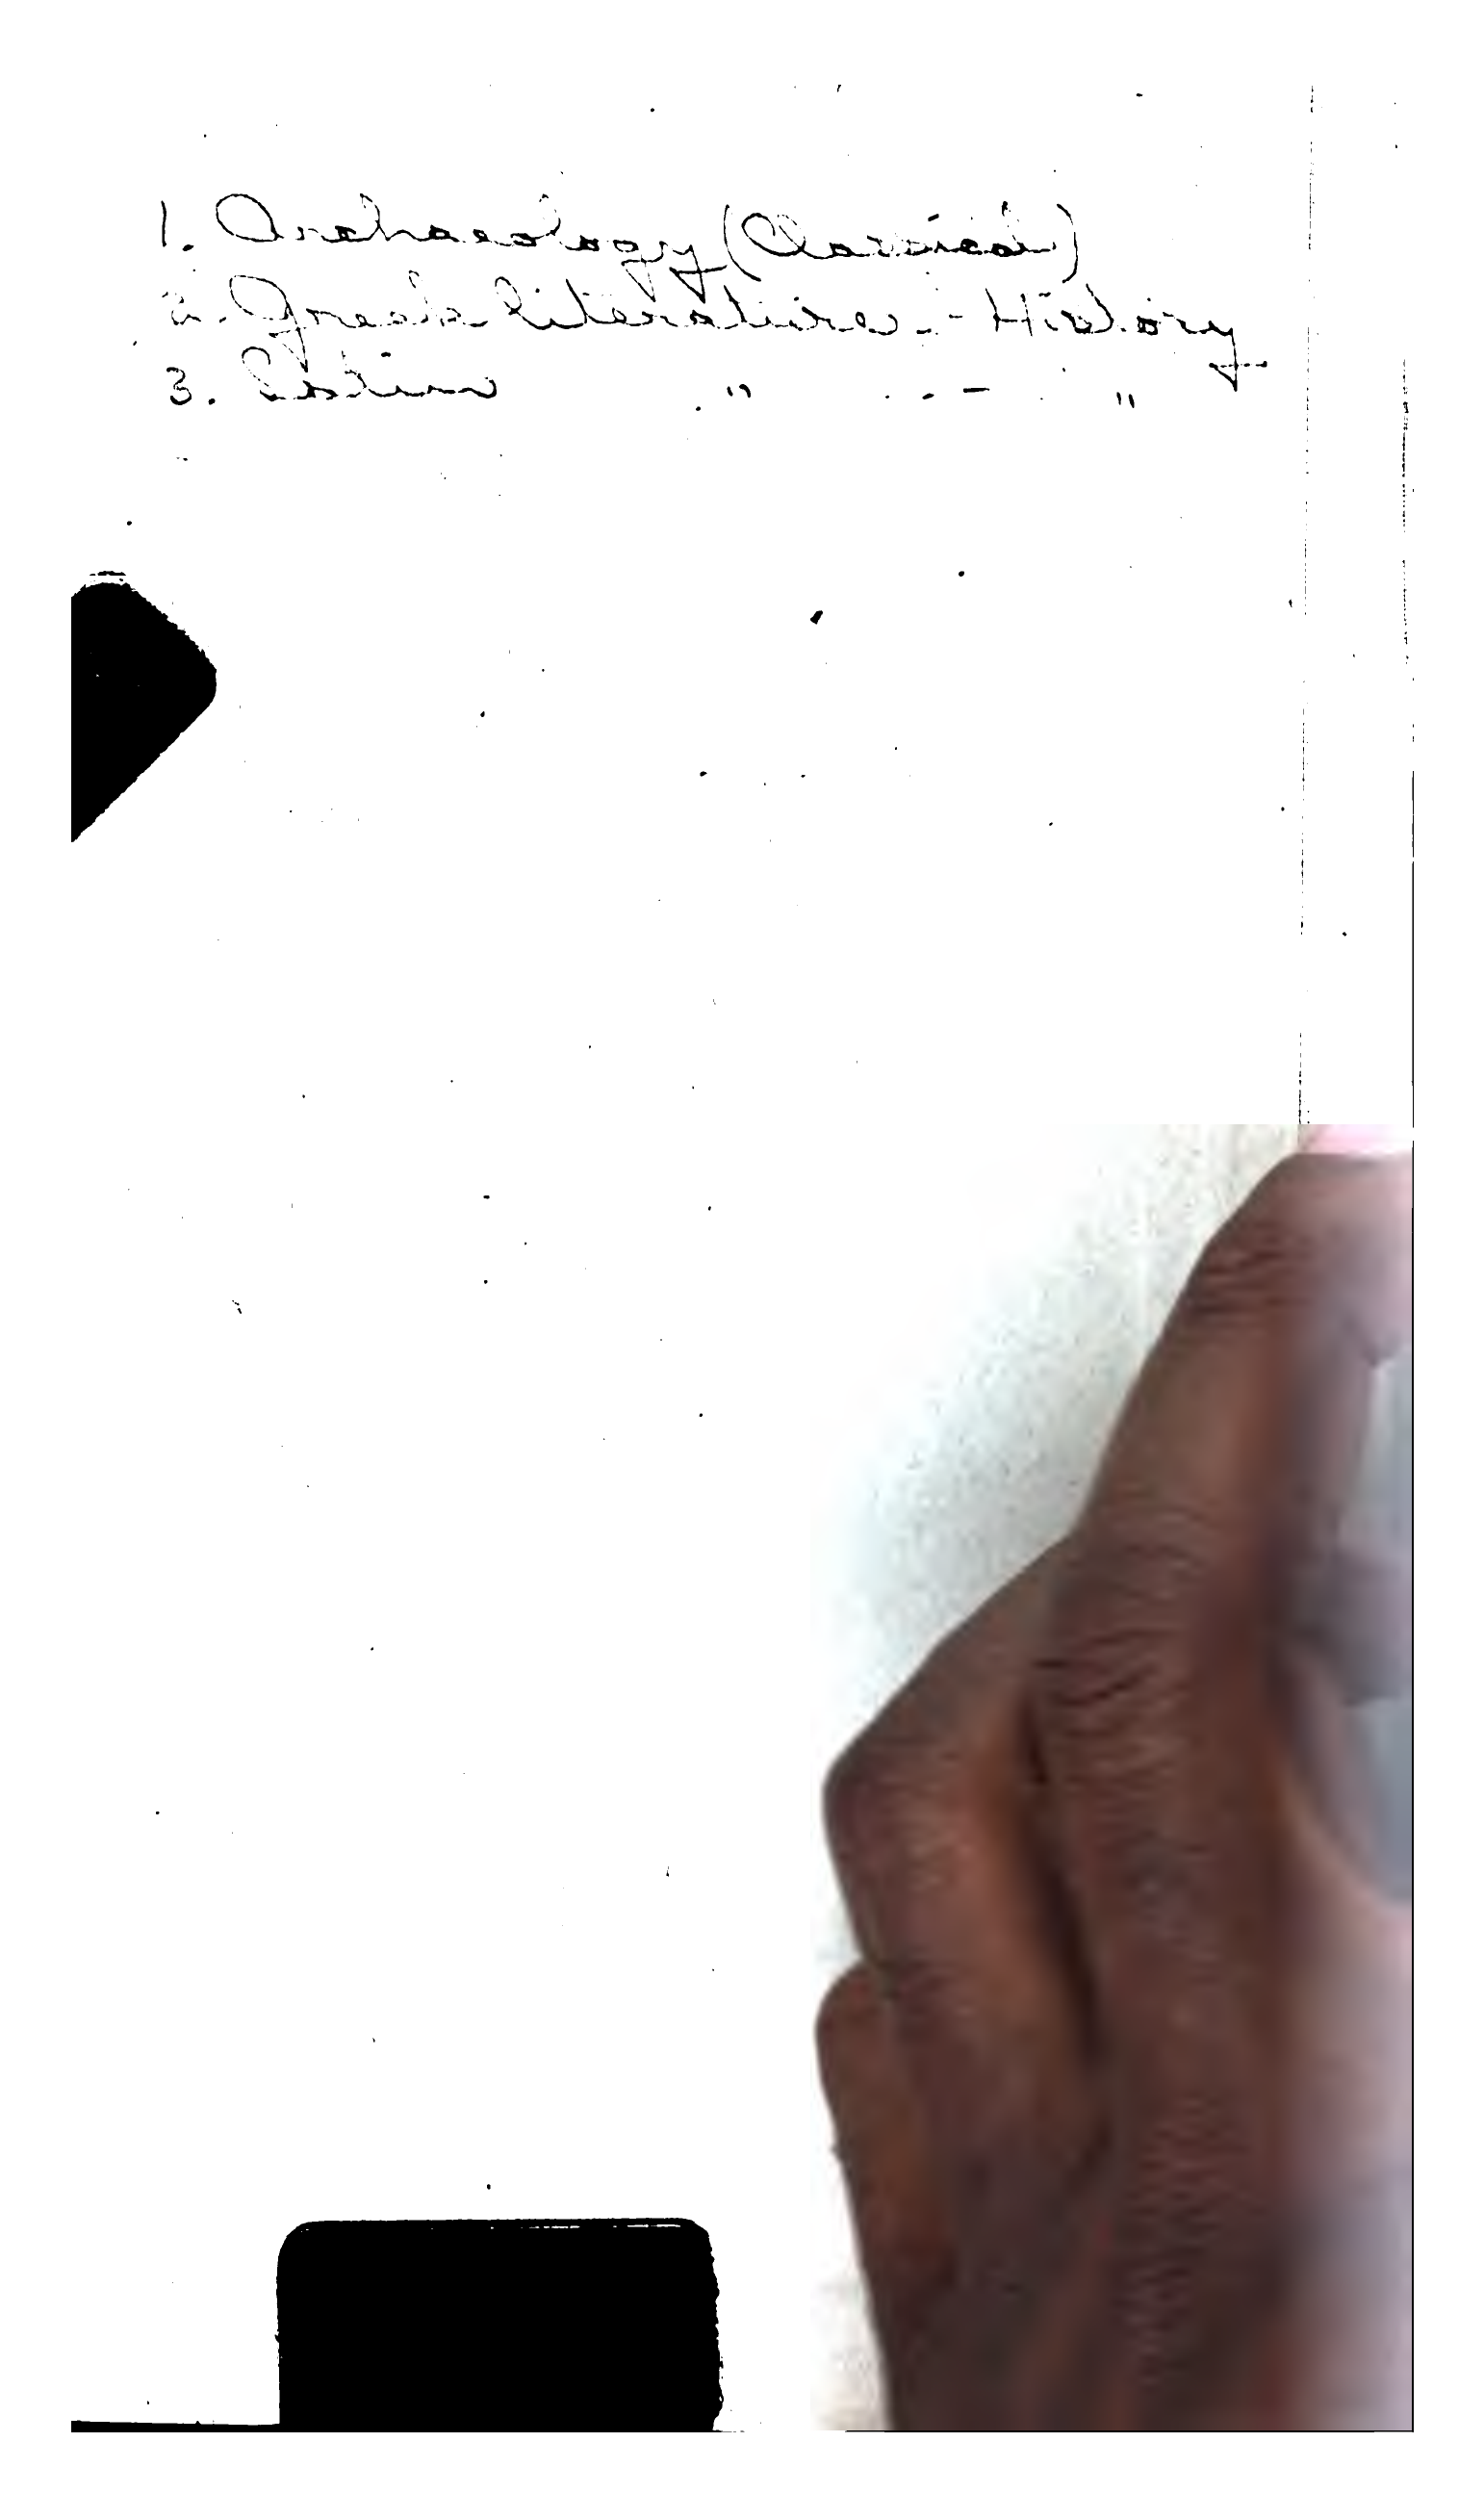 1. Archaeology (Classical)
2. Greek literature - History
3. Latin " - "